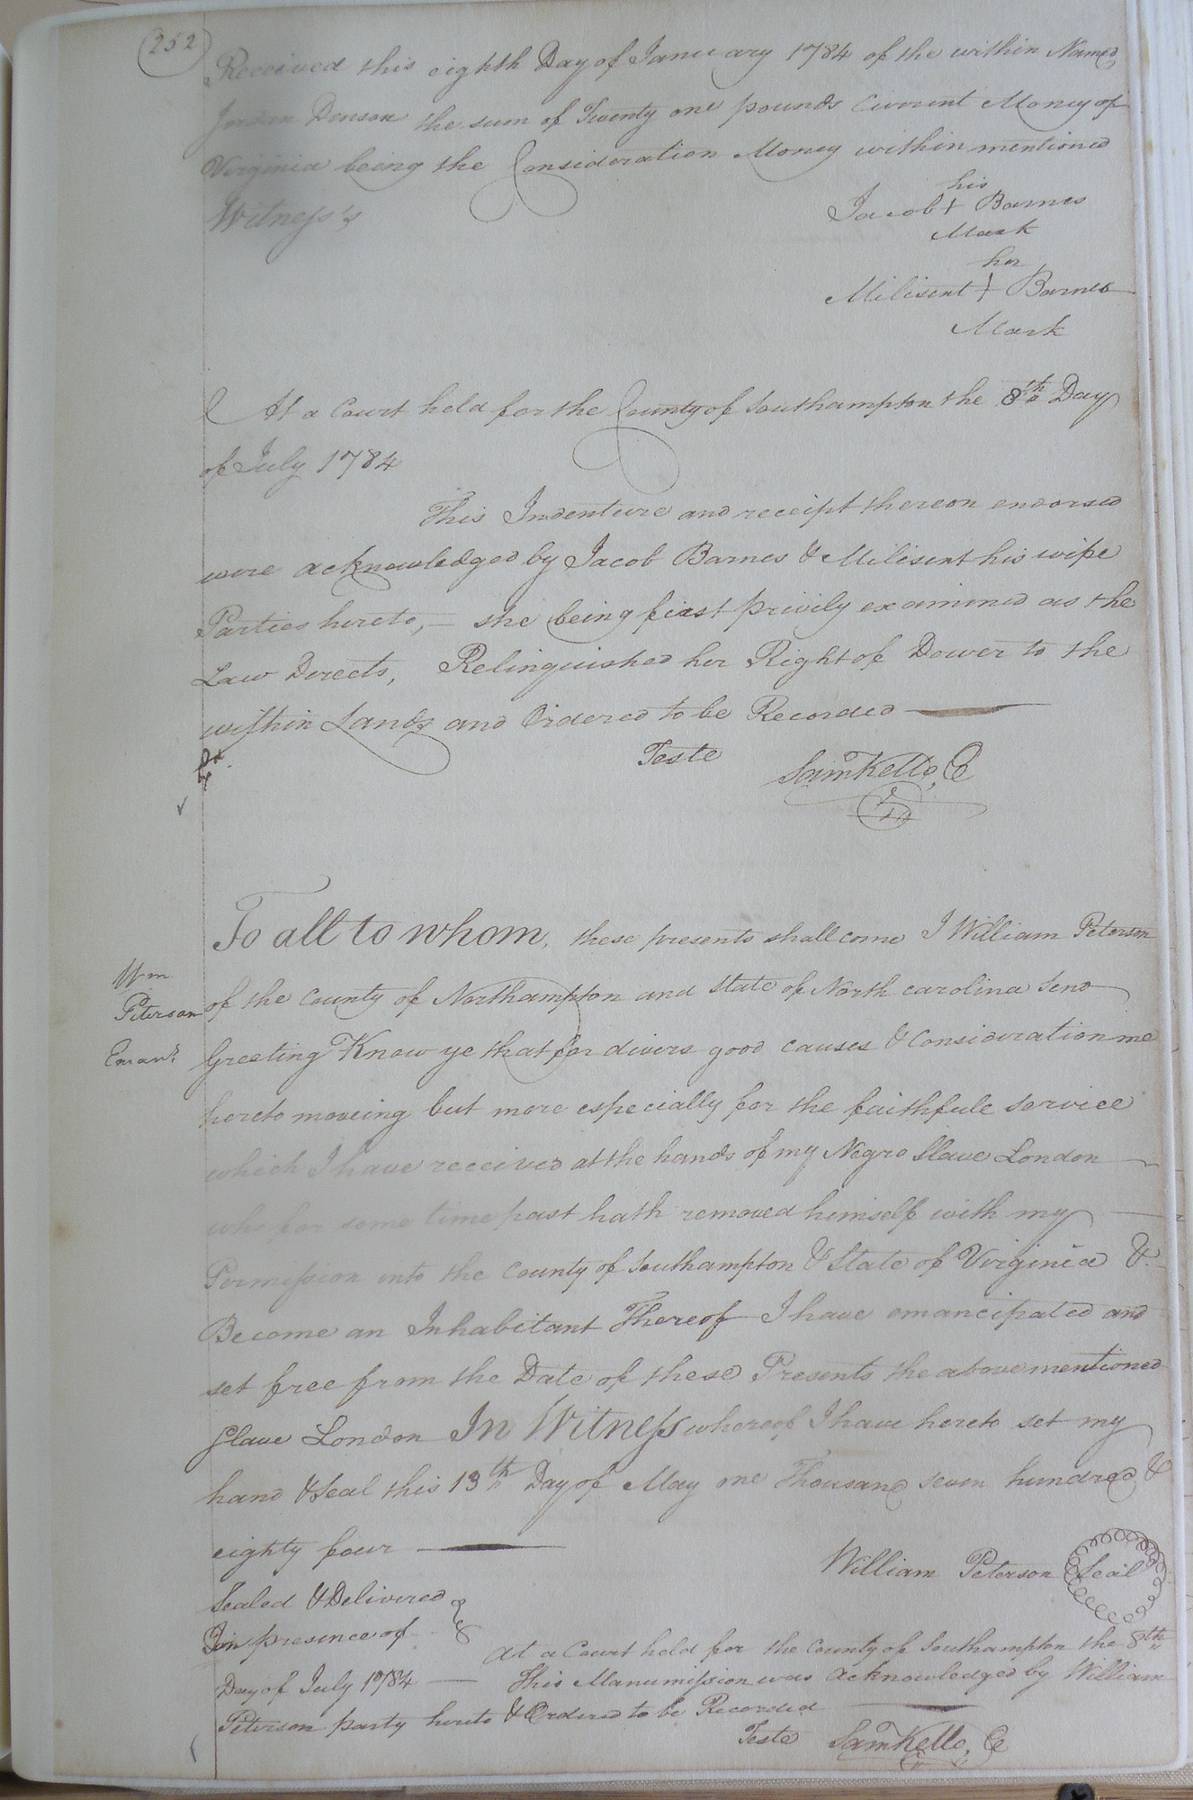 252
Received this eighth Day of January 1784 of the within Named
Jordan Denson the sum of Twenty one pounds Current Money of
Virginia being the Consideration Money within mentioned
Witness's
his
Jacob + Barnes
Mark
her
Milisent + Barnes
Mark
At a Court held for the County of Southampton the 8th Day
of July 1784
This Indenture and receipt thereon endorsed
were acknowledged by Jacob Barnes & Milisent his wife
Parties hereto, — she being first privily examined as the
Law Directs, Relinquished her Right of Dower to the
within Lands and Ordered to be Recorded —
Teste Sam Kello, C
To all to whom, these presents shall come I William Peterson
Wm
Peterson
of the County of Northampton and State of North carolina send
Greeting Know ye that for divers good causes & Consideration me
hereto moveing but more especially for the faithfull service
which I have received at the hands of my Negro Slave London —
who for some time past hath removed himself with my —
Permission into the County of Southampton & State of Virginia &
Become an Inhabitant Thereof I have emancipated and
set free from the Date of these Presents the abovementioned
Slave London In Witness whereof I have hereto set my
hand & Seal this 13th Day of May one Thousand seven hundred &
eighty four —
William Peterson Seal
Sealed & Delivered
In presence of
At a Court held for the County of Southampton the 8th
Day of July 1784 — This Manumission was acknowledged by William
Peterson party hereto & Ordered to be Recorded —
Teste Sam Kello, C